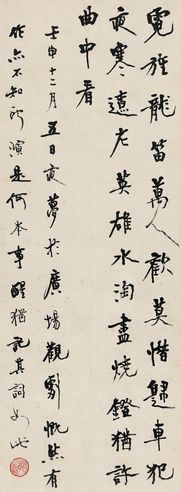 霓旌龍笛萬人歡莫惜歸車犯
夜寒老英雄水淘盡燒鐙猶許
曲中看
壬申十二月五日夜夢於廣場觀劇慨然有
作亦不知所演是何本事醒猶記其詞如此